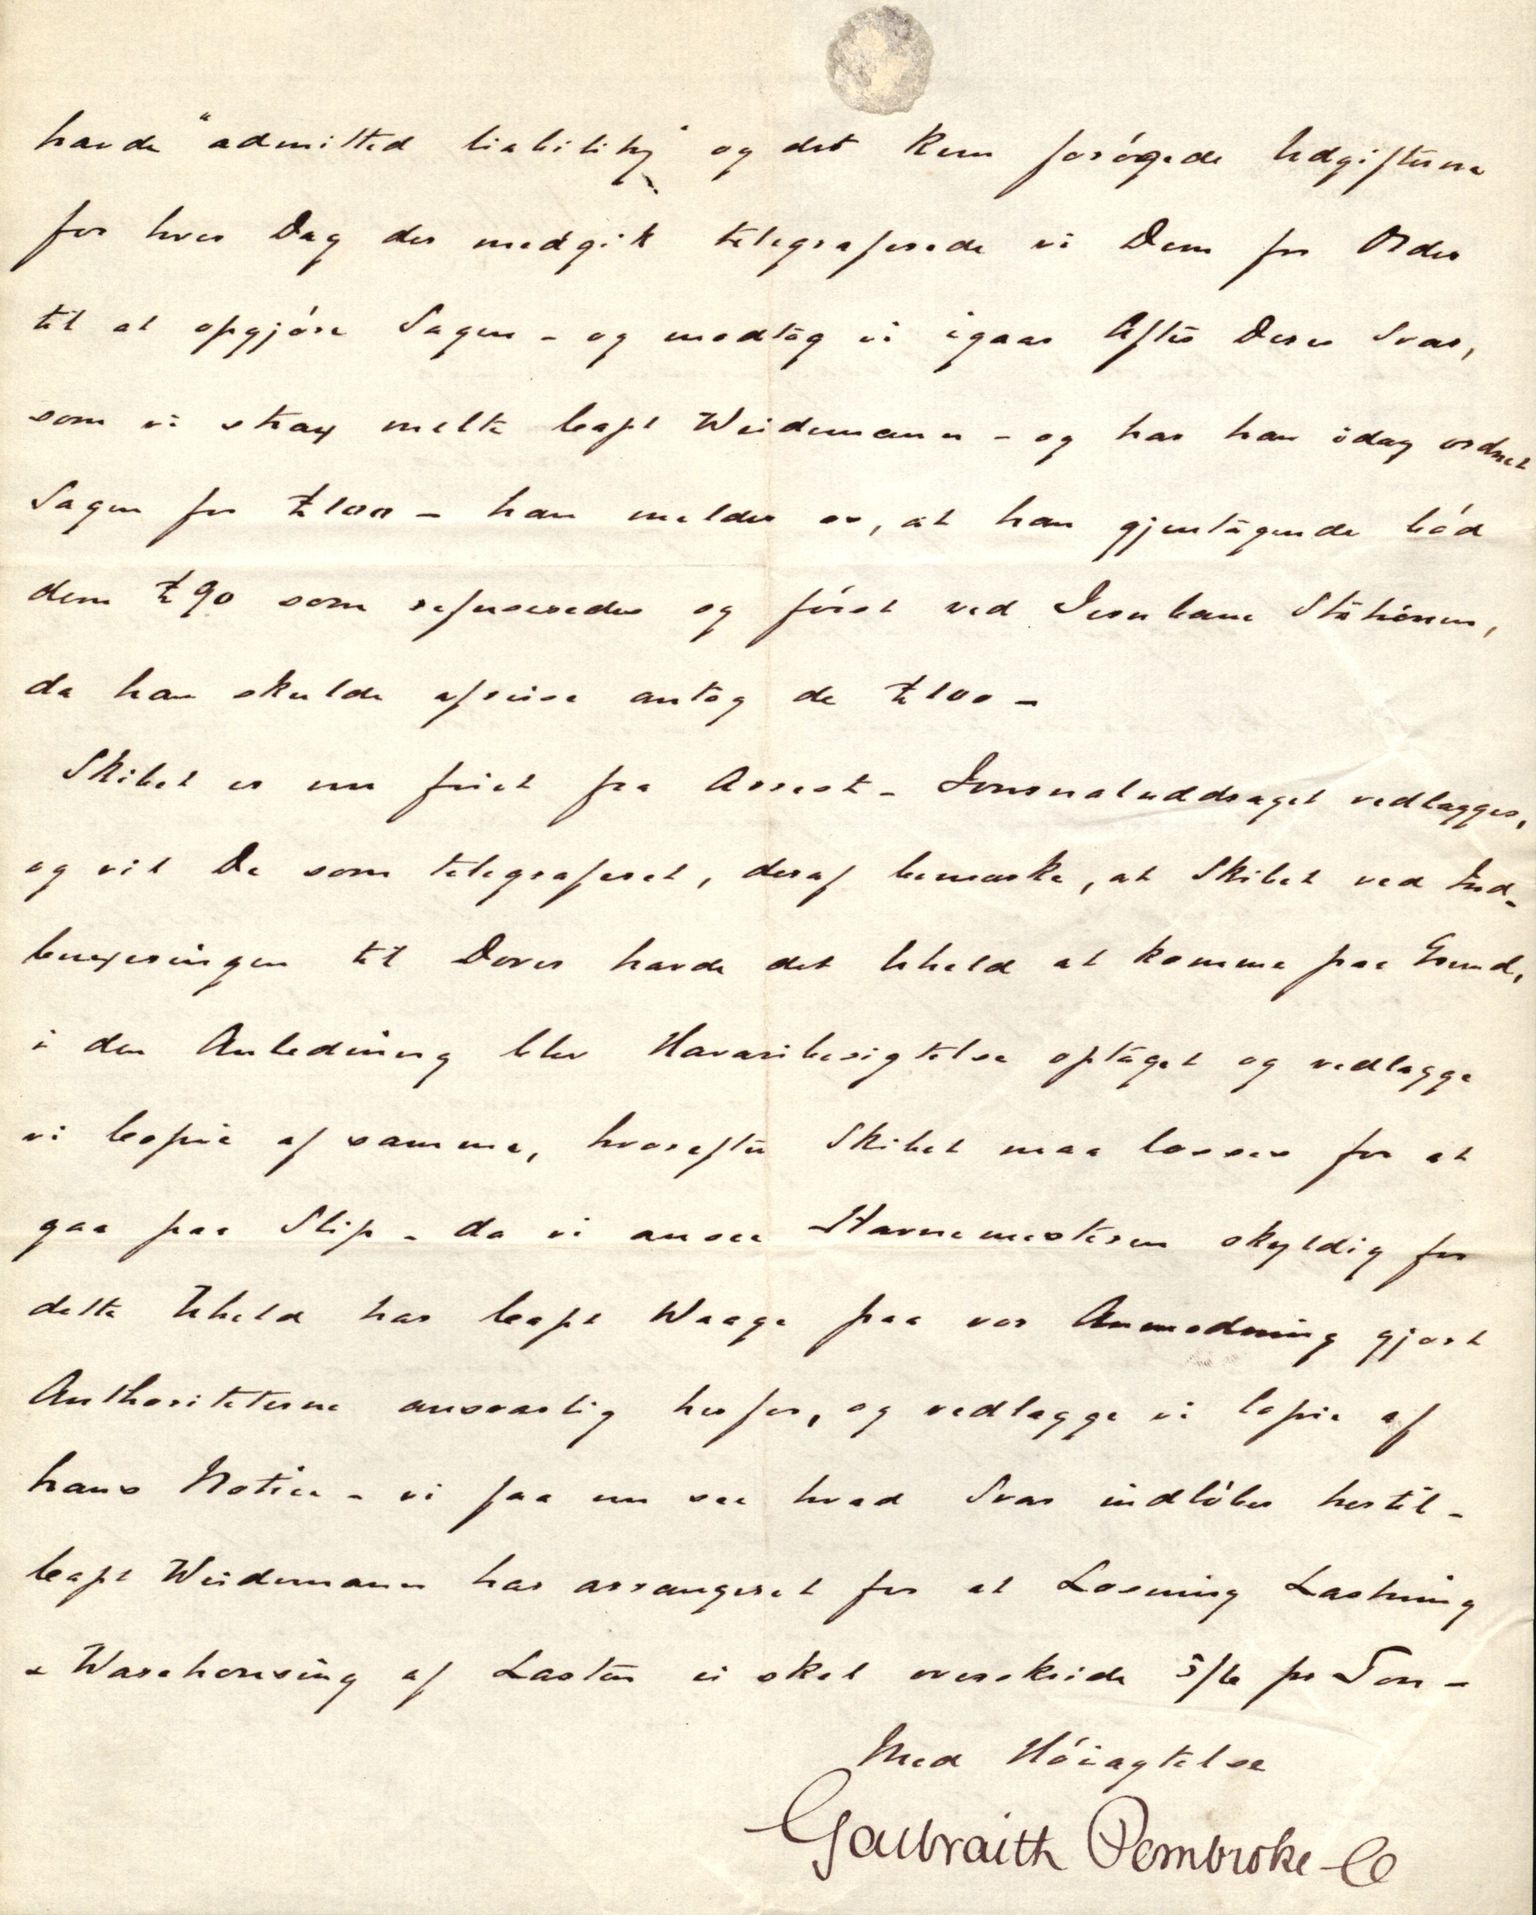 havde "admitted liability" og det kun forógede Udgifterne
for hver Dag der medgik telegraferede vi Dem for Order
til at opgjóre Sagen – og modtog vi igaar Aftes Deres Svar,
som vi strax meldte Capt Weidemann – og har han idag ordnet
Sagen for £100 – han melder os, at han gjentagende bód
dem £90 som refuseredes og fórst ved Jernbane Stationen,
da han skulde afreise antog de £100 –
Skibet er nu friet fra Arrest – Journaluddraget vedlægges,
og vil De som telegraferet, deraf bemærke, at Skibet ved Ind-
buxeringen til Dover havde det Uheld at komme paa Grund,
i den Anledning blev Havaribesigtelse optaget og vedlægge
vi Copie af samme, hvorefter Skibet maa losses for at
gaa paa Slip – da vi ansee Havnemesteren skyldig for
dette Uheld har Capt Waage paa vor Anmodning gjort
Authoriteterne ansvarlig herfor, og vedlægge vi Copie af
hans Notice – vi faa nu see hvad Svar indlóber hertil –
Capt Weidemann har arrangeret for at Losning Lastning
& Warehousing af Lasten ei skal overskride 5/6 pr Ton –
Med Hóiagtelse
Galbraith Pembroke & Co